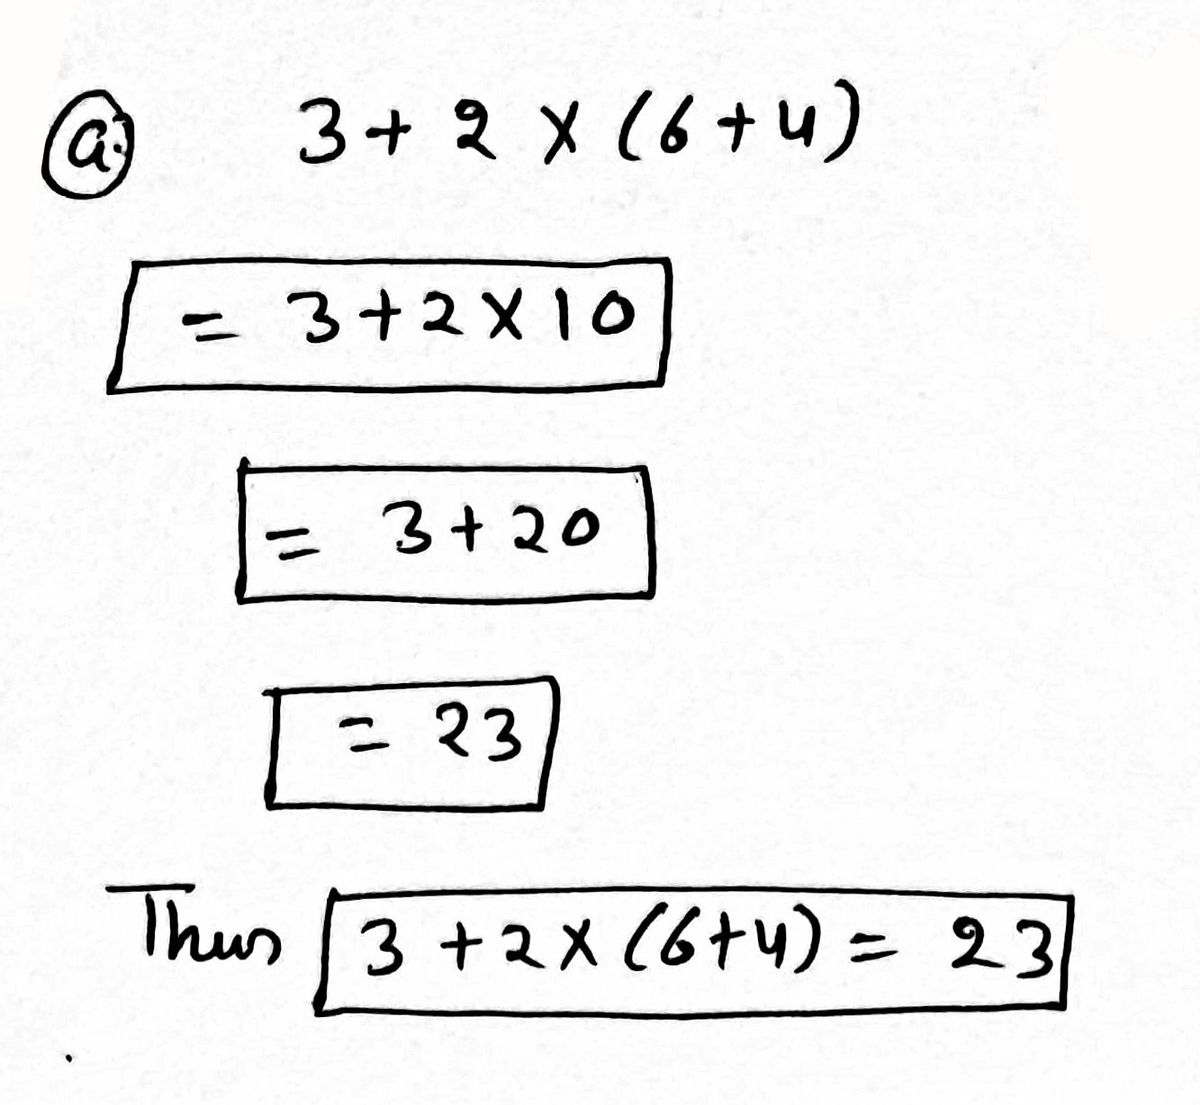 a. 3 + 2 × (6 + 4)
= 3 + 2 × 10
= 3 + 20
= 23
Thus 3 + 2 × (6 + 4) = 23